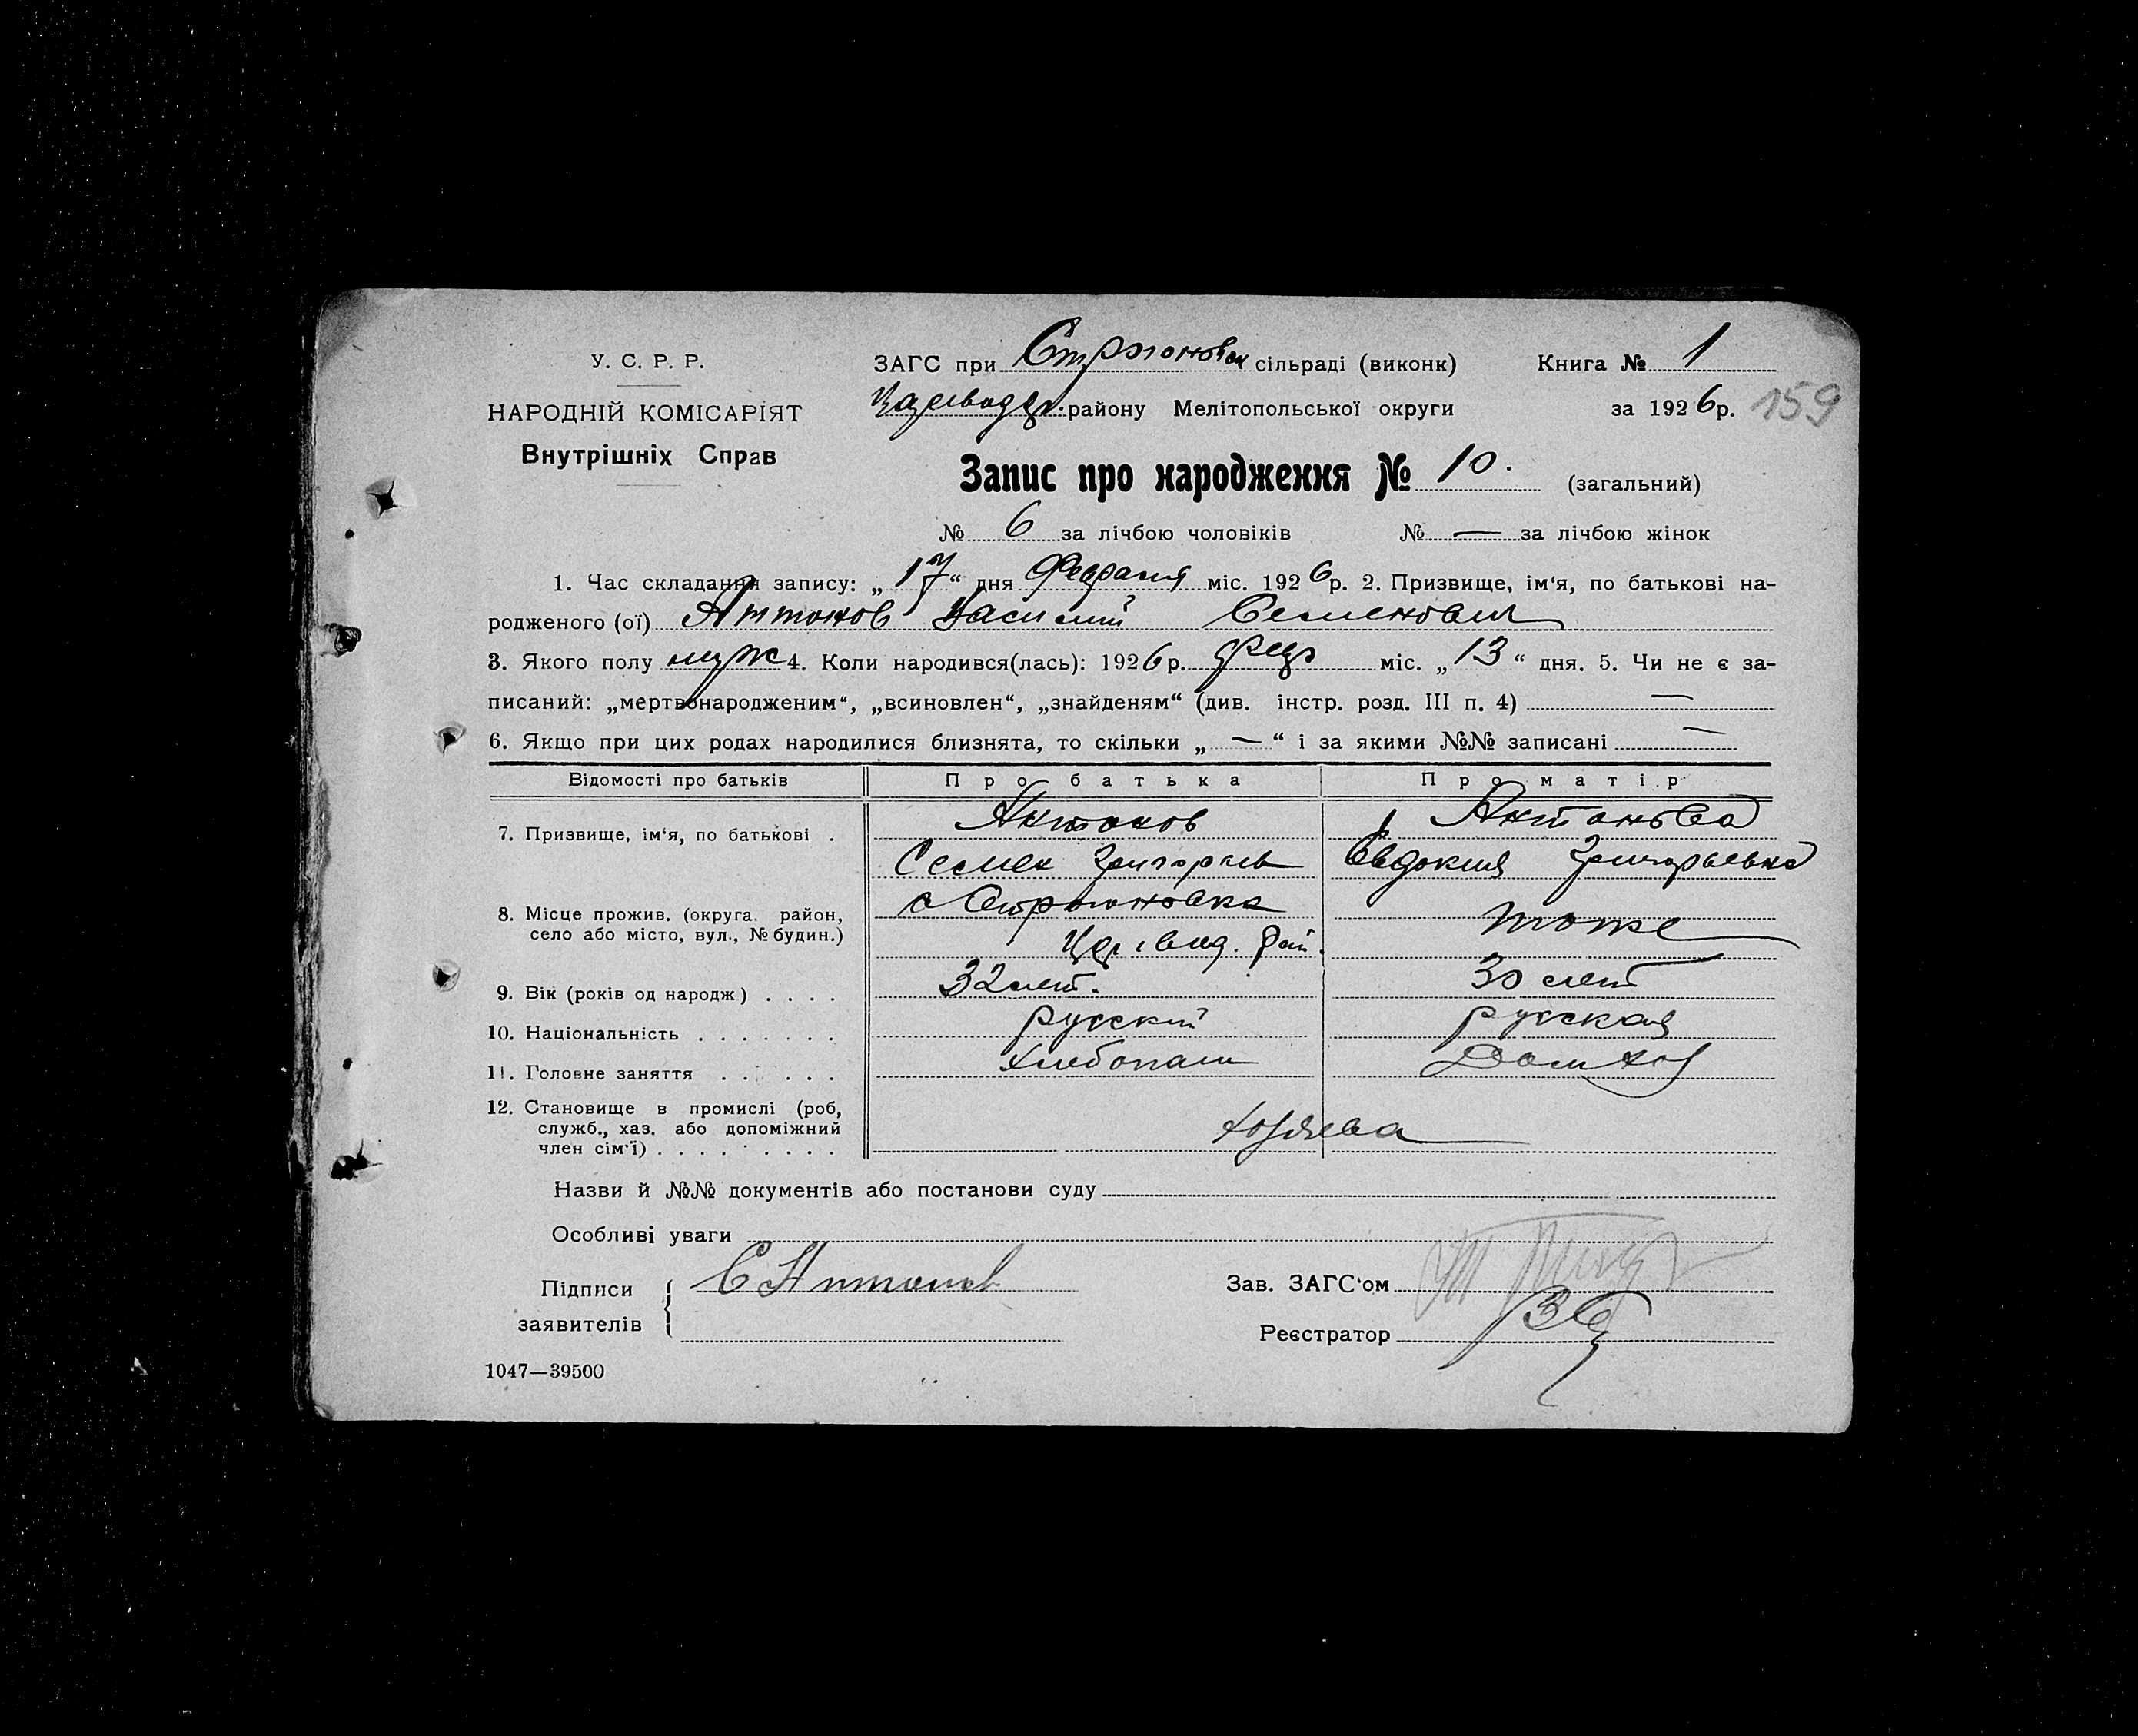 У. С. Р. Р.
НАРОДНІЙ КОМІСАРІЯТ
Внутрішніх Справ
ЗАГС при Строгоновск сільраді (виконк) Книга № 1
району Мелітопольської округи за 1926р. 159
Запис про народження № 10. (загальний)
№ 6 за лічбою чоловіків № — за лічбою жінок
1. Час складання запису: „17“ дня Февраля міс. 1926р. 2. Призвище, ім‘я, по батькові на-
родженого (ої) Антонов Василий Семенович
3. Якого полу муж 4. Коли народився(лась): 1926р. февр міс. „13“ дня. 5. Чи не є за-
писаний: „мертвонародженим“, „всиновлен“, „знайденям“ (див. інстр. розд. III п. 4) —
6. Якщо при цих родах народилися близнята, то скільки „—“ і за якими №№ записані —
Відомості про батьків Про батька Про матір
7. Призвище, ім‘я, по батькові . Антонов Антонова
Семен Григорьев Евдокия Григорьевна
8. Місце прожив. (округа, район, с Строгоновка тоже
село або місто, вул., № будин.) Рай.
9. Вік (років од народж) . . . . 32 лет. 30 лет
10. Національність . . . . . . . русский русская
11. Головне заняття . . . . . . Хлебопаш Домхоз
12. Становище в промислі (роб,
служб., хаз. або допоміжний хозяева
член сім‘ї) . . . . . . . . .
Назви й №№ документів або постанови суду
Особливі уваги
Підписи С Антонов Зав. ЗАГС‘ом
заявителів Реєстратор
1047—39500